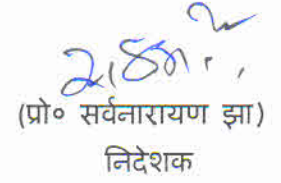 (प्रो० सर्वनारायण झा)
निदेशक